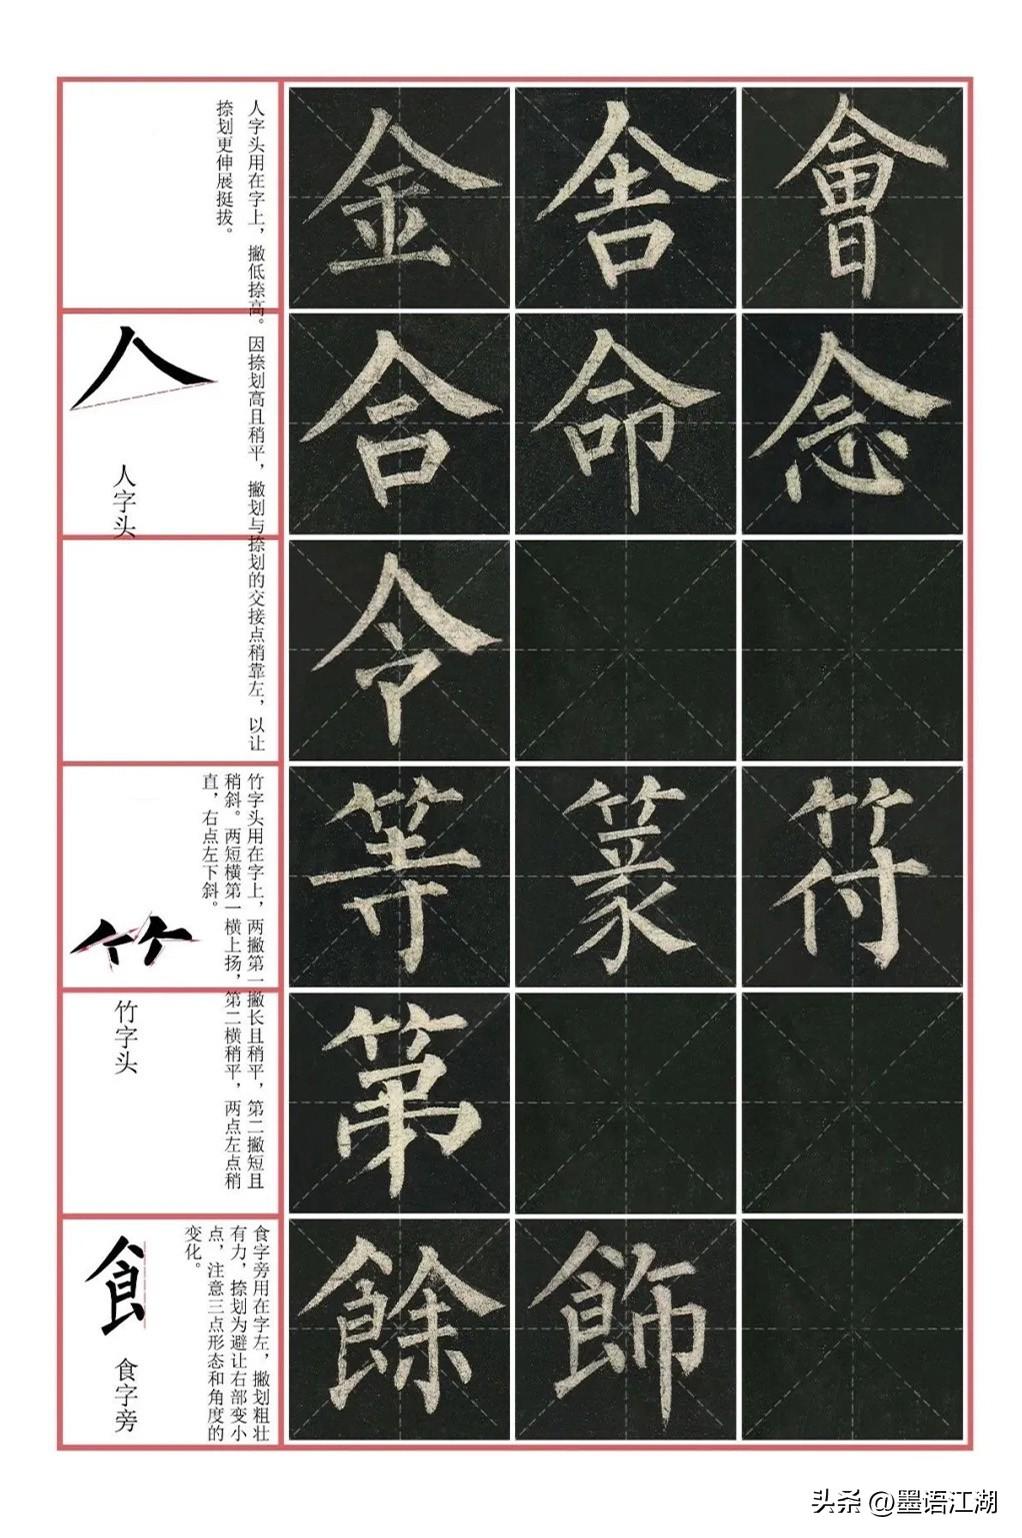 人字头用在字上，撇低捺高。因捺划高且稍平，撇划与捺划的交接点稍靠左，以让
捺划更伸展挺拔。
人
人字头
金舍會
合命念
令
竹字头用在字上，两撇第一撇长且稍平，第二撇短且
稍斜。两短横第一横上扬，第二横稍平，两点左点稍
直，右点左下斜。
竹字头
等篆符
第
食字旁用在字左，撇划粗壮
有力，捺划为避让右部变小
点，注意三点形态和角度的
变化。
飠
食字旁
餘飾
头条 @墨语江湖